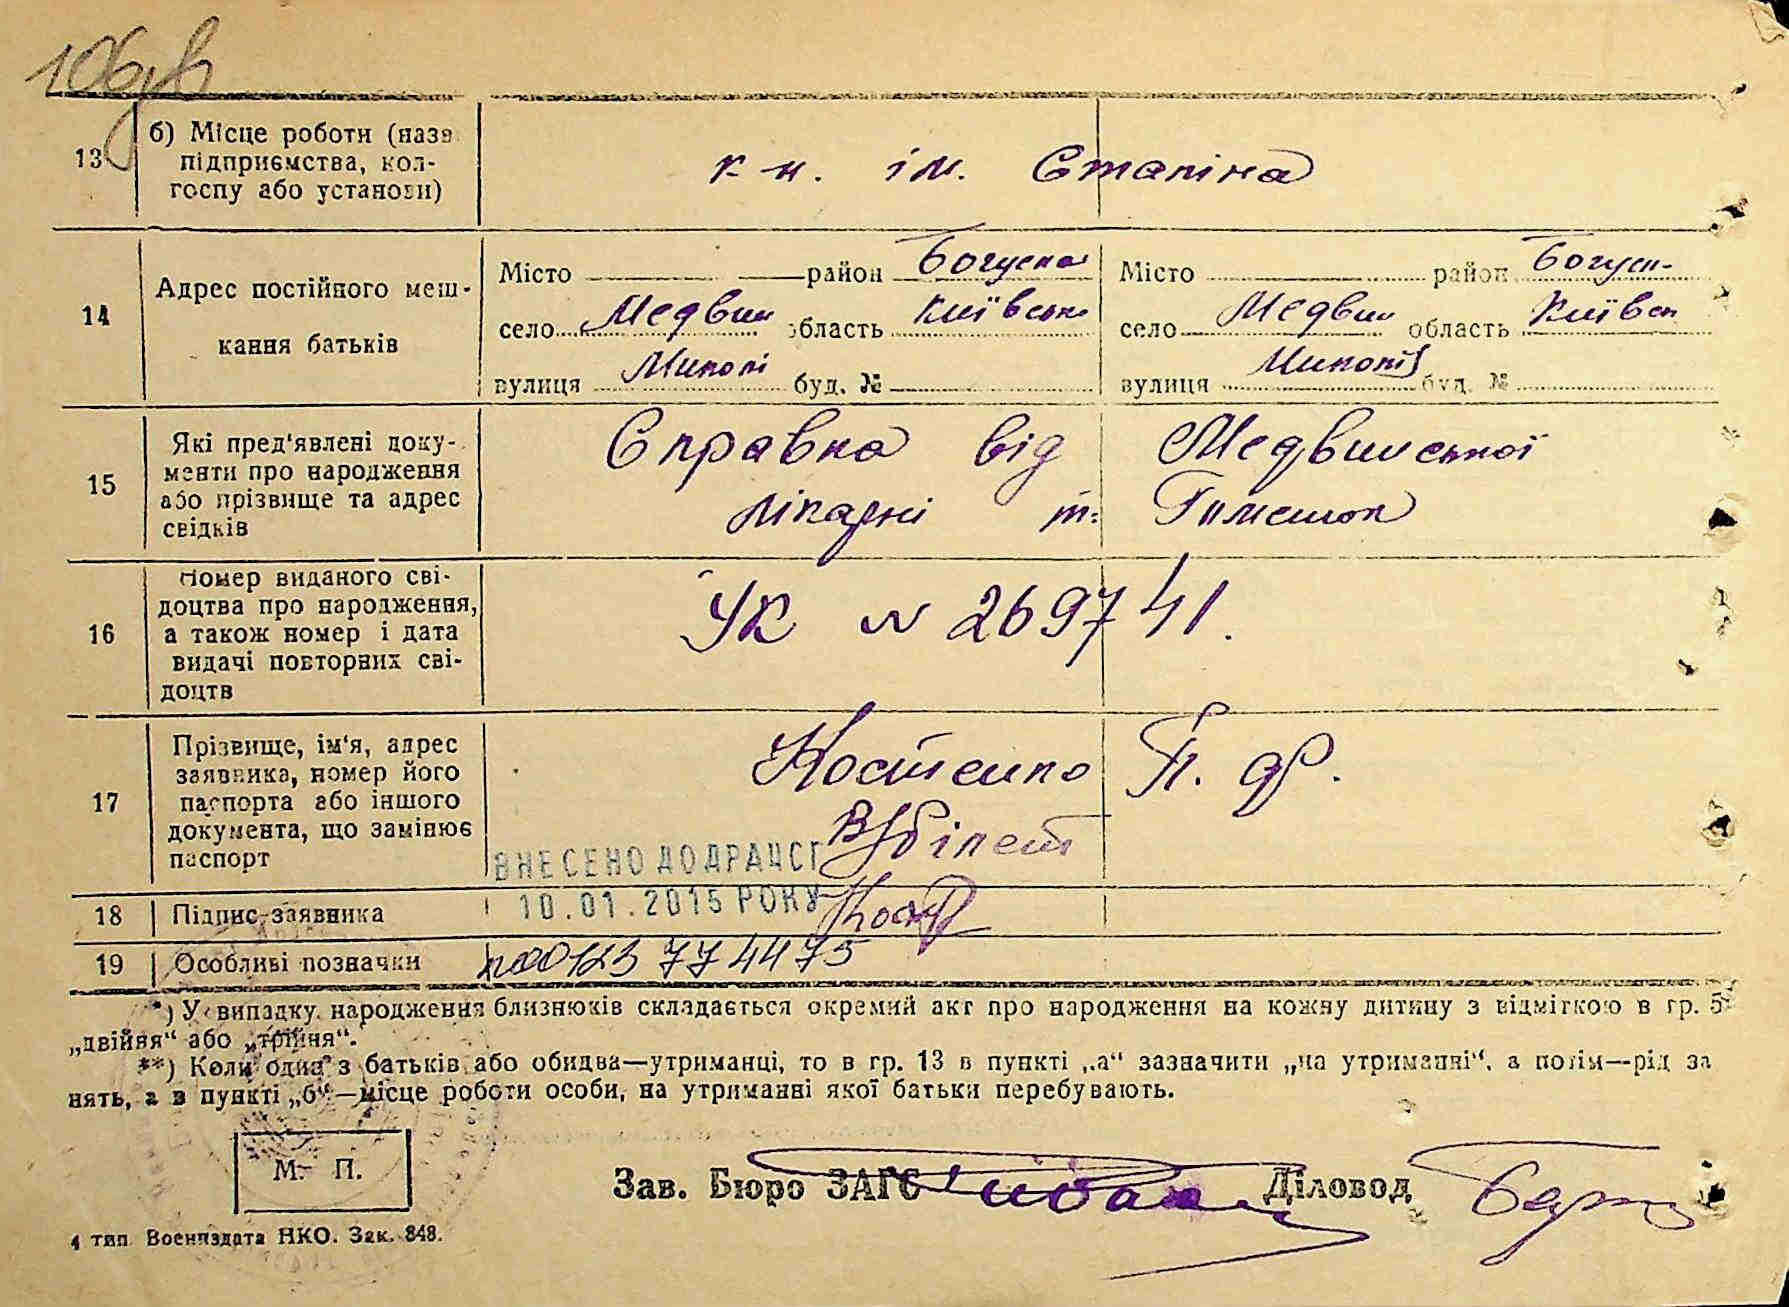 13 б) Місце роботи (назв
підприємства, кол-
госпу або установи)
к-н. ім. Сталіна
14 Адрес постійного меш-
кання батьків
Місто район Богуслав Місто район Богусл-
село Медвин область Київська село Медвин область Київсь
вулиця Миколі буд. № вулиця Миколі буд. №
15 Які пред'явлені доку-
менти про народження
або прізвище та адрес
свідків
Справка від Медвинської
лікарні т.
16 Номер виданого сві-
доцтва про народження,
а також номер і дата
видачі повторних сві-
доцтв
УК N 269741.
17 Прізвище, ім'я, адрес
заявника, номер його
паспорта або іншого
документа, що замінює
паспорт
Костенко П. др.
В/білет
ВНЕСЕНО ДО ДРАЦСГ
10.01.2015 РОКУ
18 Підпис заявника
19 Особливі позначки 00123774475
*) У випадку народження близнюків складається окремий акт про народження на кожну дитину з відміткою в гр. 5
„двійня“ або „трійня“.
**) Коли один з батьків або обидва—утриманці, то в гр. 13 в пункті „а“ зазначити „на утриманні“, а потім—рід за
нять, а в пункті „б“—місце роботи особи, на утриманні якої батьки перебувають.
М. П.
Зав. Бюро ЗАГС Діловод
4 тип Воениздата НКО. Зак. 848.